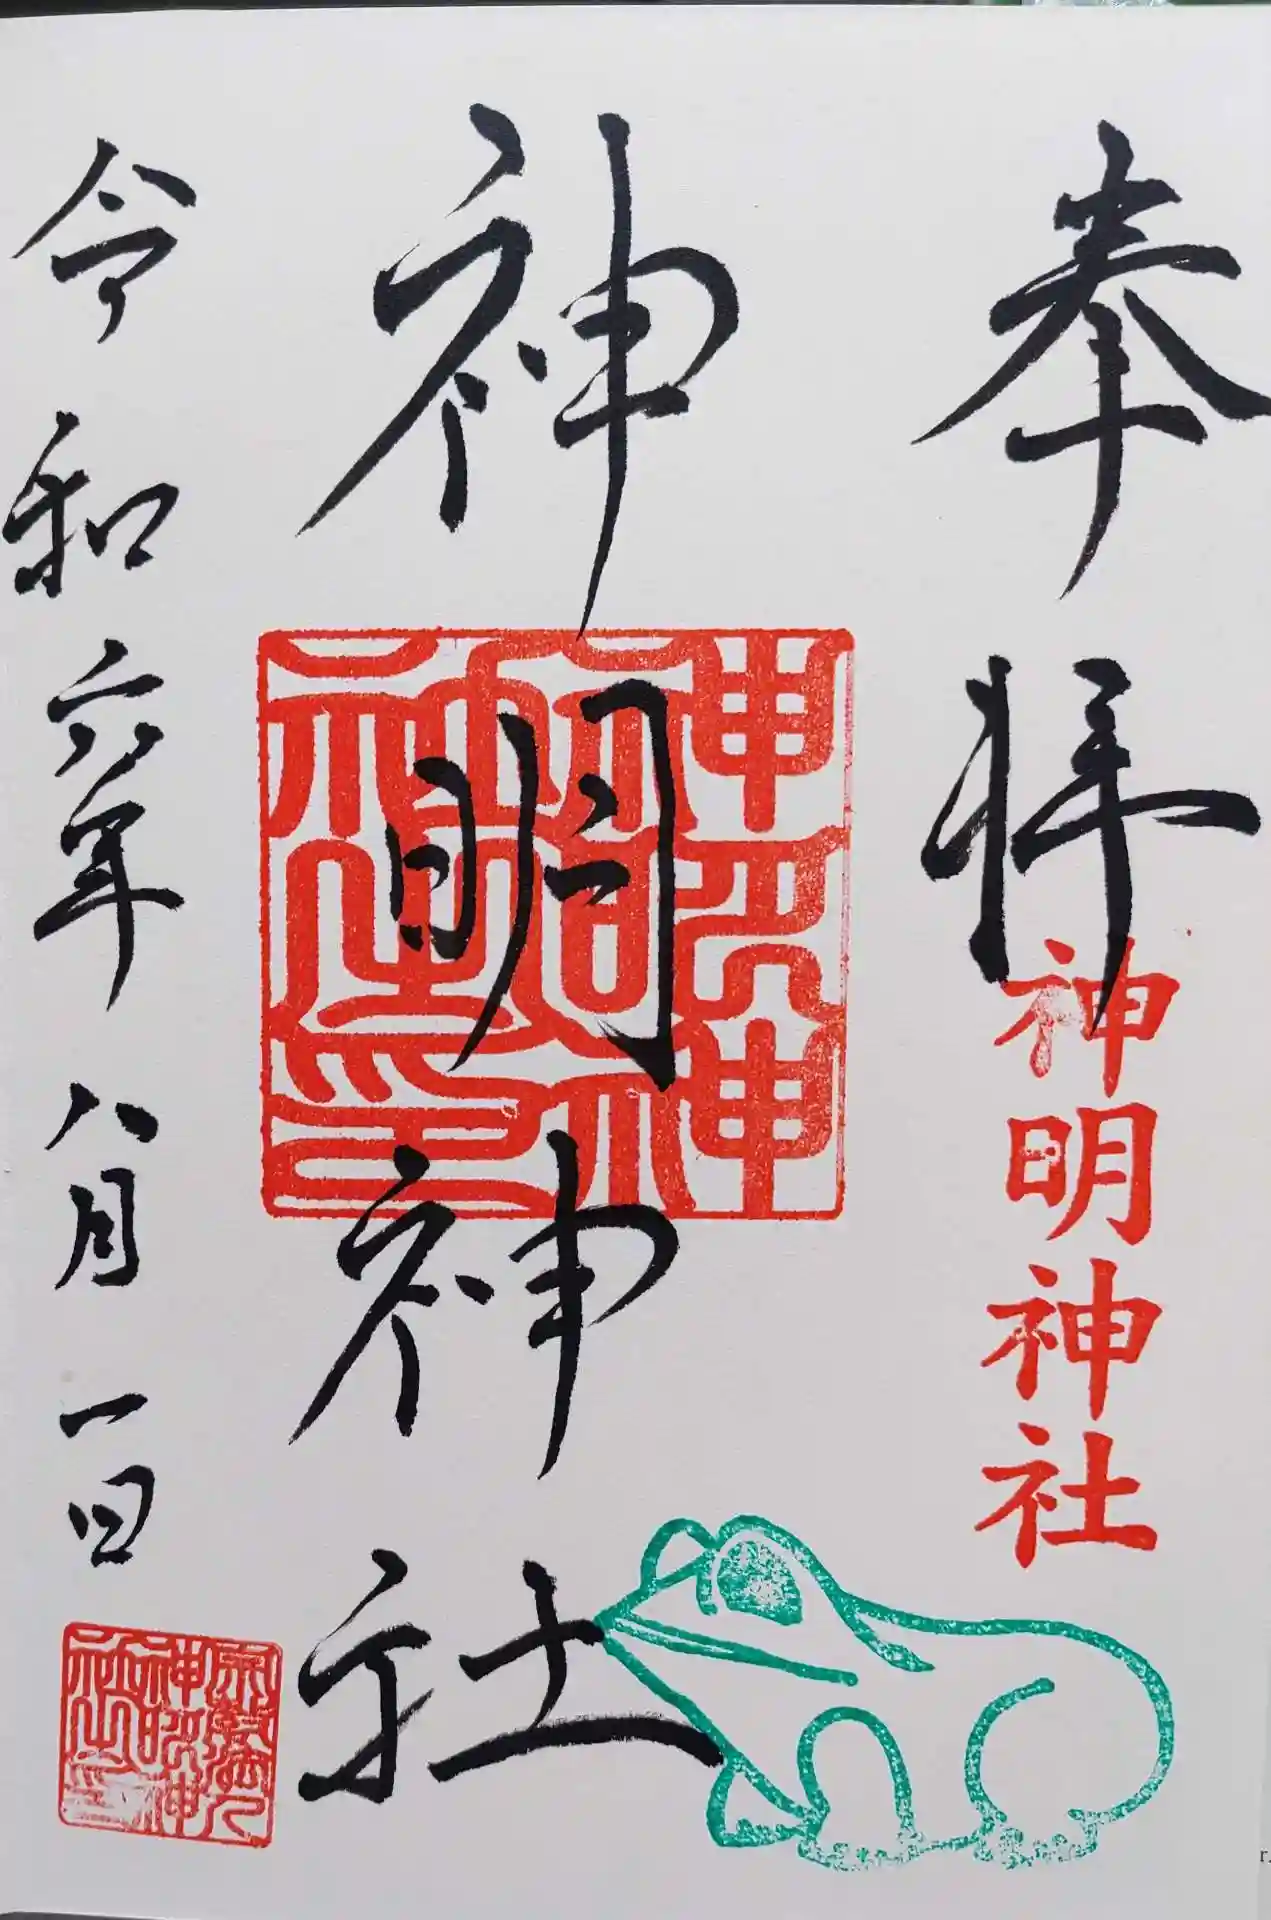 奉拝
神明神社
神明神社
神明神社之印
令和六年八月一日
宗教法人神明神社之印